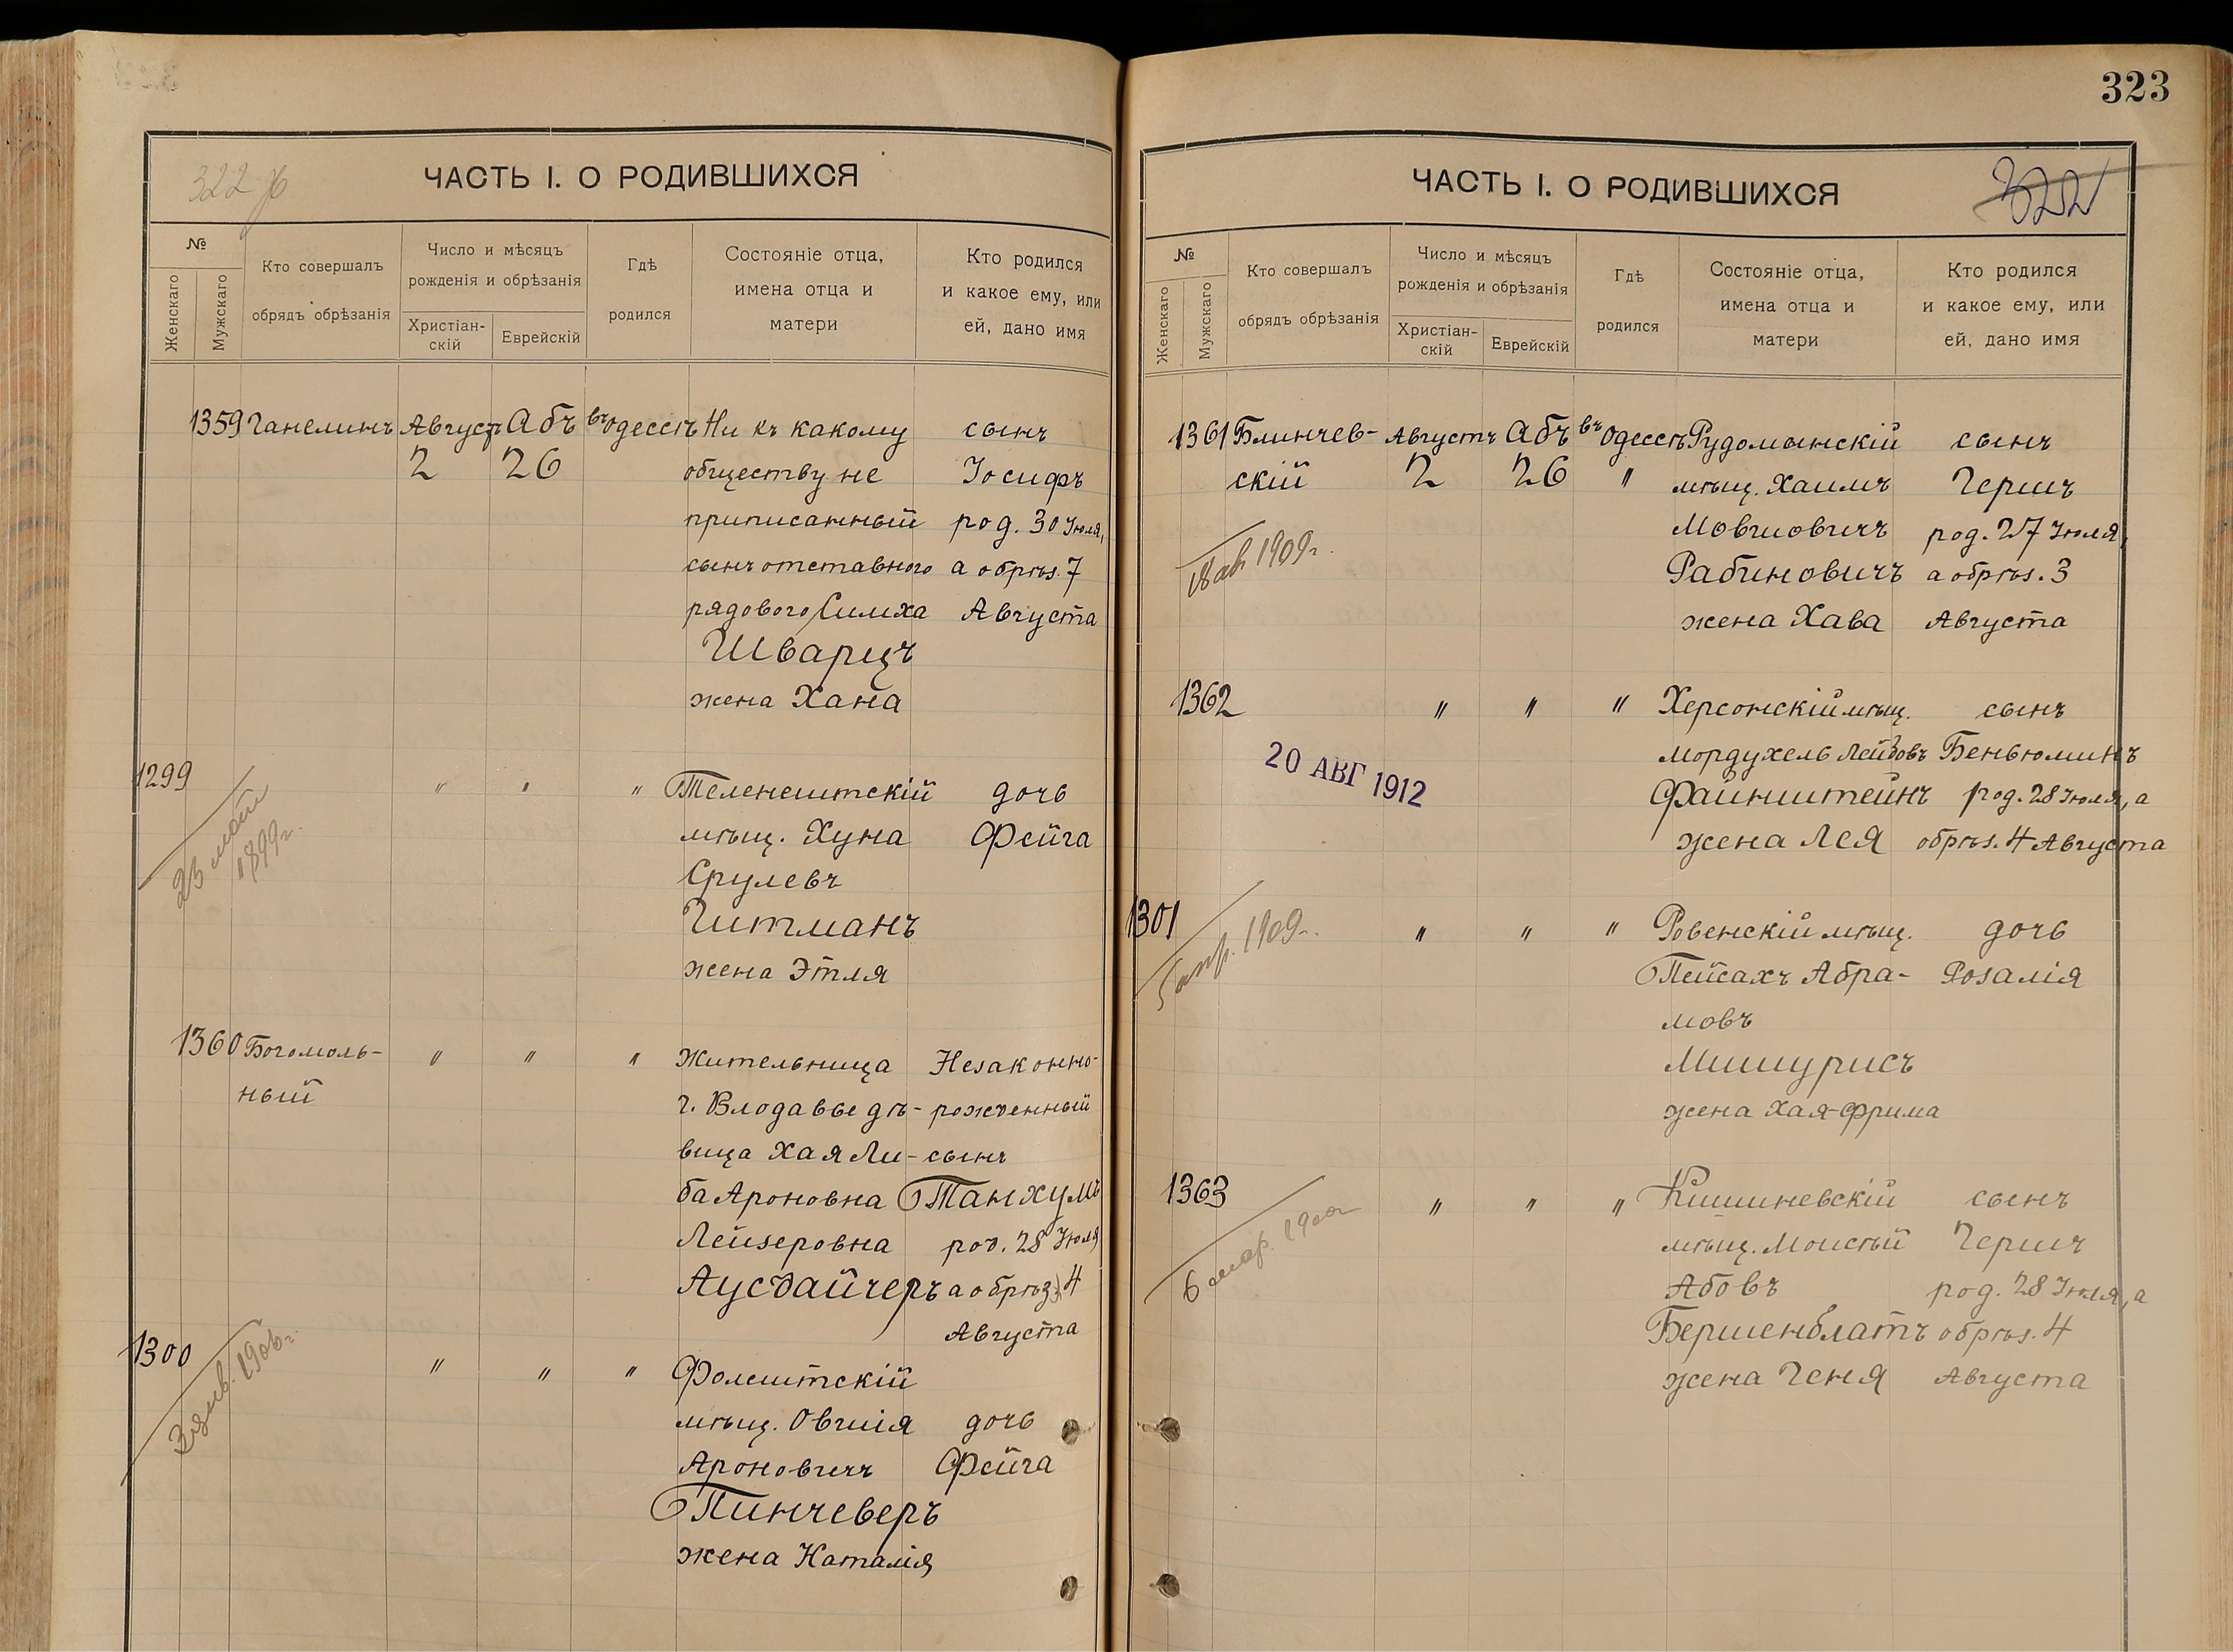 322 
ЧАСТЬ I. О РОДИВШИХСЯ
№
Женскаго
Мужскаго
Кто совершалъ
обрядъ обрѣзанія
Число и мѣсяцъ
рожденія и обрѣзанія
Христіан-
скій
Еврейскій
Гдѣ
родился
Состояніе отца,
имена отца и
матери
Кто родился
и какое ему, или
ей, дано имя
1359 Ганелинъ Августъ Абъ въ Одессѣ Ни къ какому сынъ
2 26 обществу не Іосифъ
приписанный род. 30 Іюля,
сынъ отставного а обрѣз. 7
рядового Симха Августа
Шварцъ
жена Хана
1299 " " " Теленештскій дочь
23 мая 1899г.
мѣщ. Хуна Фейга
Срулевъ
Гитманъ
жена Этля
1360 Богомоль- " " " Жительница Незаконно-
ный г. Влодавы дѣ- рожденный
вица Хая Ли- сынъ
ба Ароновна Танхумъ
Лейзеровна род. 28 Іюля
Аусдайчеръ а обрѣз. 4
Августа
1300 " " " Фалештскій
мѣщ. Овшія дочь
Ароновичъ Фейга
Пинчеверъ
жена Наталія
323
ЧАСТЬ I. О РОДИВШИХСЯ
322
№
Женскаго
Мужскаго
Кто совершалъ
обрядъ обрѣзанія
Число и мѣсяцъ
рожденія и обрѣзанія
Христіан-
скій
Еврейскій
Гдѣ
родился
Состояніе отца,
имена отца и
матери
Кто родился
и какое ему, или
ей, дано имя
1361 Блинчев- Августъ Абъ въ Одессѣ Рудомынскій сынъ
скій 2 26 " мѣщ. Хаимъ Гершъ
Мовшовичъ род. 27 Іюля,
1909г.
Рабиновичъ а обрѣз. 3
жена Хава Августа
1362 " " " Херсонскій мѣщ. сынъ
Мордухель Лейбовъ Беньюминъ
20 АВГ 1912
Файнштейнъ род. 28 Іюля, а
жена Лея обрѣз. 4 Августа
1301 " " " Ровенскій мѣщ. дочь
5 апр. 1909г.
Пейсахъ Абра- Розалія
мовъ
Мишурисъ
жена Хая-Фрима
1363 " " " Кишиневскій сынъ
6 мар. 1900г
мѣщ. Моисѣй Гершъ
Абовъ род. 28 Іюля, а
Бершенблатъ обрѣз. 4
жена Геня Августа